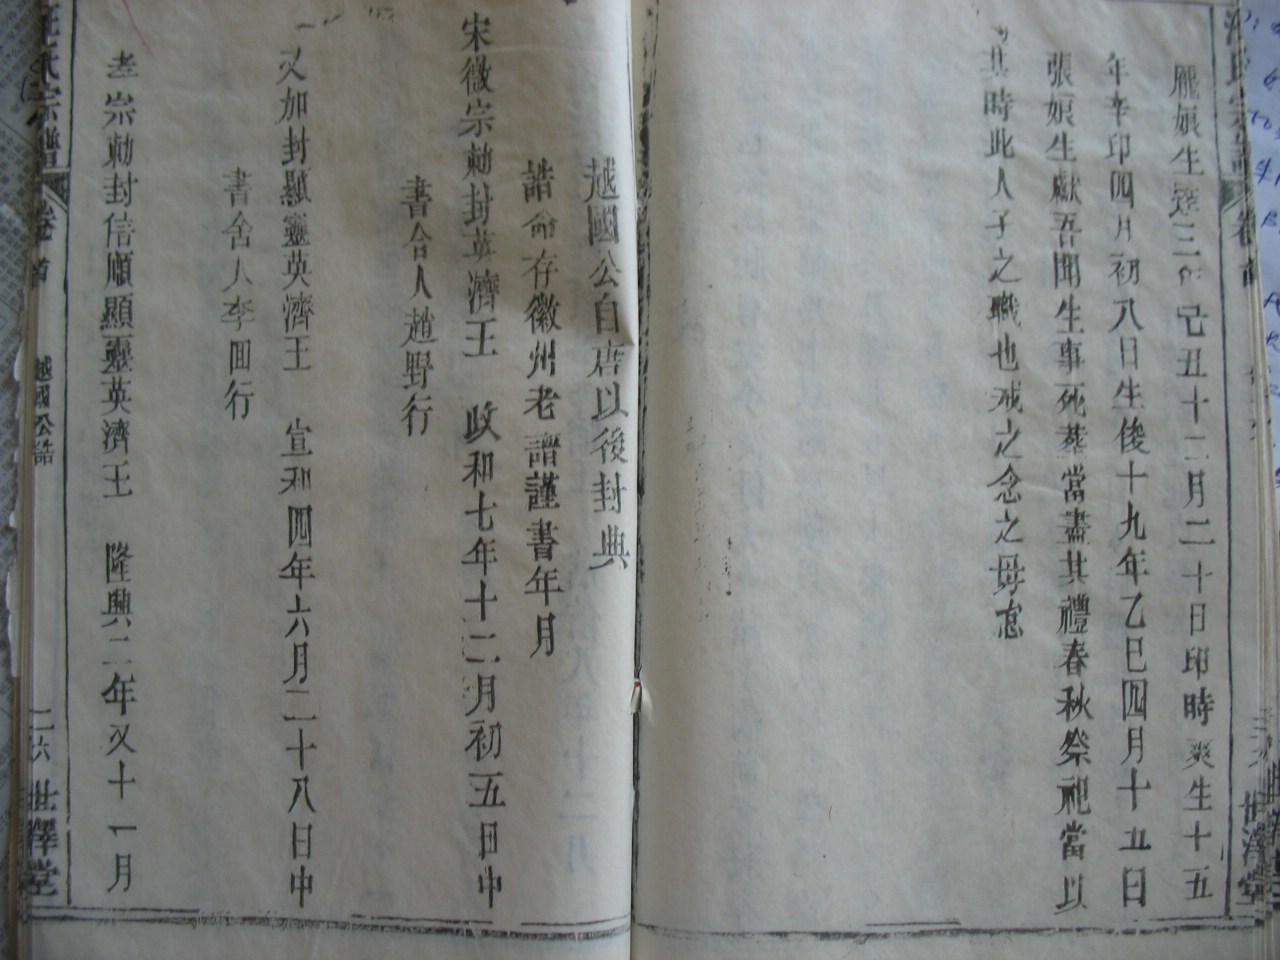 龐娘生逵三年己丑十二月二十日卯時爽生十五
年辛卯四月初八日生俊十九年乙巳四月十五日
張娘生獻吾聞生事死葬當盡其禮春秋祭祀當以
其時此人子之職也戒之念之毋怠
越國公自唐以後封典
誥命存徽州老譜謹書年月
宋徽宗勅封英濟王　政和七年十二月初五日中
書舍人趙野行
又加封顯靈英濟王　宣和四年六月二十八日中
書舍人李回行
孝宗勅封信順顯靈英濟王　隆興二年又十一月
汪氏宗譜 卷首 越國公誥 二六 世澤堂